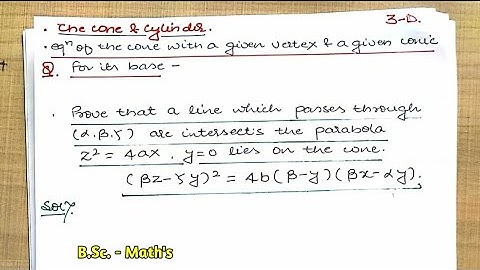 3-D.
• The cone & Cylinder.
• eqⁿ of the cone with a given vertex & a given conic
Q. for its base -
• Prove that a line which passes through
(α, β, ζ) are intersects the parabola
z² = 4ax, y=0 lies on the cone.
(βz-ζy)² = 4b(β-y)(βx-αy).
Solⁿ.
B.Sc. - Math's